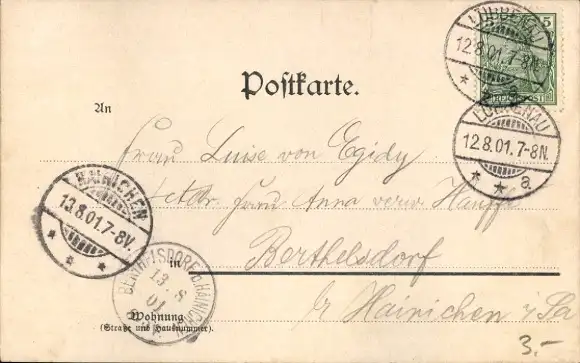 LÜBBENAU
12.8.01.7-8N.
5
Postkarte.
LÜBBENAU
12.8.01.7-8N.
a
An
Frau Luise von Egidy
Adr. Frau Anna verw. Hauffe
HAINICHEN
13.8.01.7-8V.
Berthelsdorf
in
BERTHELSDORF B. HAINICHEN
13 8
01
b/ Hainichen i/Sa
Wohnung
(Straße und Hausnummer).
3.-